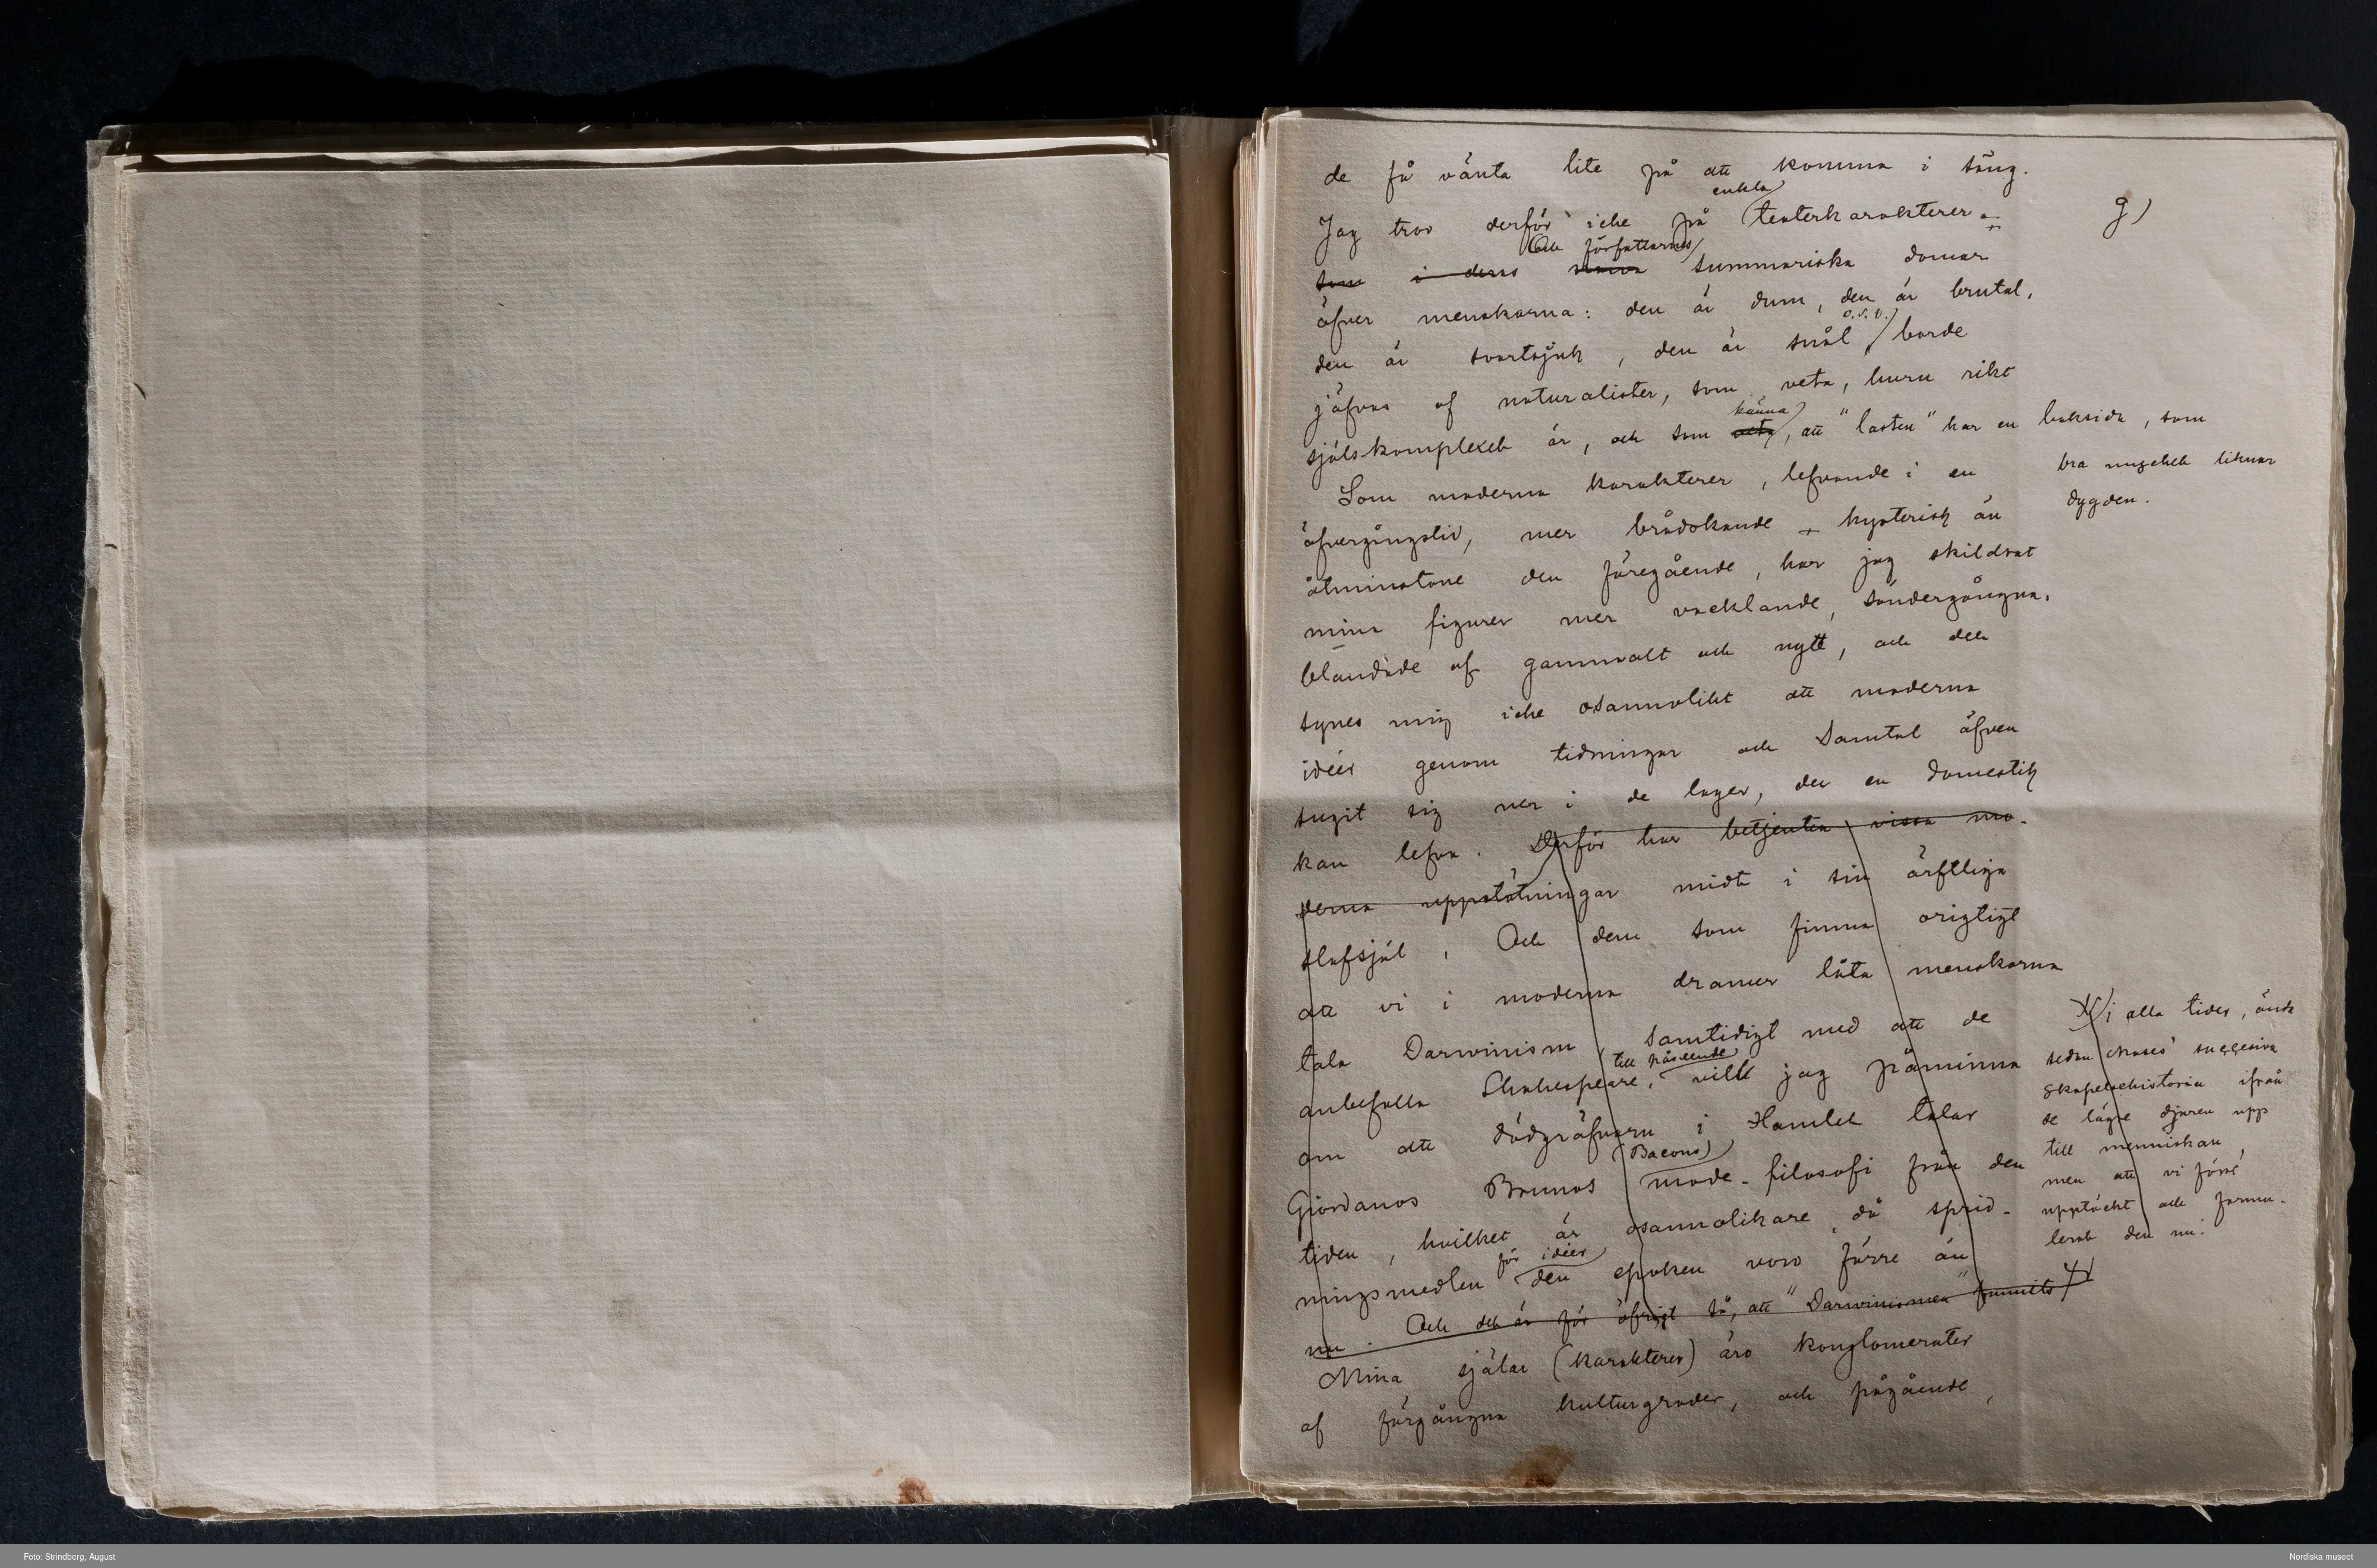 de få vänta lite på att komma i säng.
g)
enkla
Jag tror derför icke på teaterkarakterer.
Och författarnes
som i dess summariska domar
öfver menskorna: den är dum, den är brutal,
o.s.v.
den är svartsjuk, den är snål, borde
jäfvas af naturalister, som veta, huru rikt
känna
själskomplexet är, och som veta, att "lasten" har en baksida, som
bra mycket liknar
dygden.
Som moderna karakterer, lefvande i en
öfvergångstid, mer brådskande + hysterisk än
åtminstone den föregående, har jag skildrat
mina figurer mer vacklande, söndergångna,
blandade af gammalt och nytt, och det
synes mig icke osannolikt att moderna
idéer genom tidningar och samtal äfven
sugit sig ner i de lager, der en domestik
kan lefva. Derför har betjenten vissa mo-
derna uppstötningar midt i sin ärftliga
slafsjäl. Och dem som finna origtigt
att vi i moderna dramer låta menskorna
tala Darwinism, samtidigt med att de
till påseende
anbefalla Shakespeare, vill jag påminna
om att dödgräfvaren i Hamlet talar
(Bacons)
Giordanos Brunos mode-filosofi från den
tiden, hvilket är osannolikare, då sprid-
för idéer
ningsmedlen den epoken voro färre än
nu. Och det är för öfrigt så, att "Darwinismen" funnits
i alla tider, ända
sedan Moses' succesiva
skapelsehistoria ifrån
de lägre djuren upp
till menniskan,
men att vi först
upptäckt och formu-
lerat den nu!
Mina själar (karakterer) äro konglomerater
af förgångna kulturgrader, och pågående,
Foto: Strindberg, August
Nordiska museet